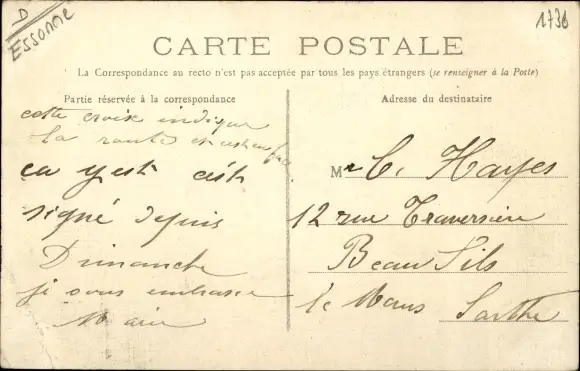 D
Essonne
1736
CARTE POSTALE
La Correspondance au recto n'est pas acceptée par tous les pays étrangers (se renseigner à la Poste)
Partie réservée à la correspondance
cette croix indique
la route et est en face
ça y est c'est
signé depuis
Dimanche
je vous embrasse
Marie
Adresse du destinataire
Mr C. Hayes
12 rue Traversière
Beau Sils
le Mans Sarthe